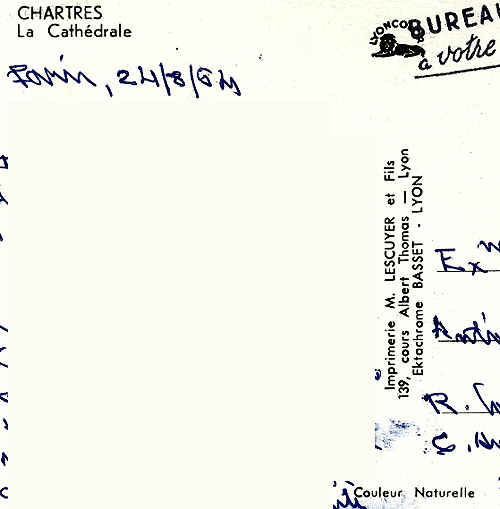 CHARTRES
La Cathédrale
BUREAU
à votre
LYONCO
24/8/64
Imprimerie M. LESCUYER et Fils
139, cours Albert Thomas — Lyon
Ektachrome BASSET - LYON
Ex
R.
Couleur Naturelle